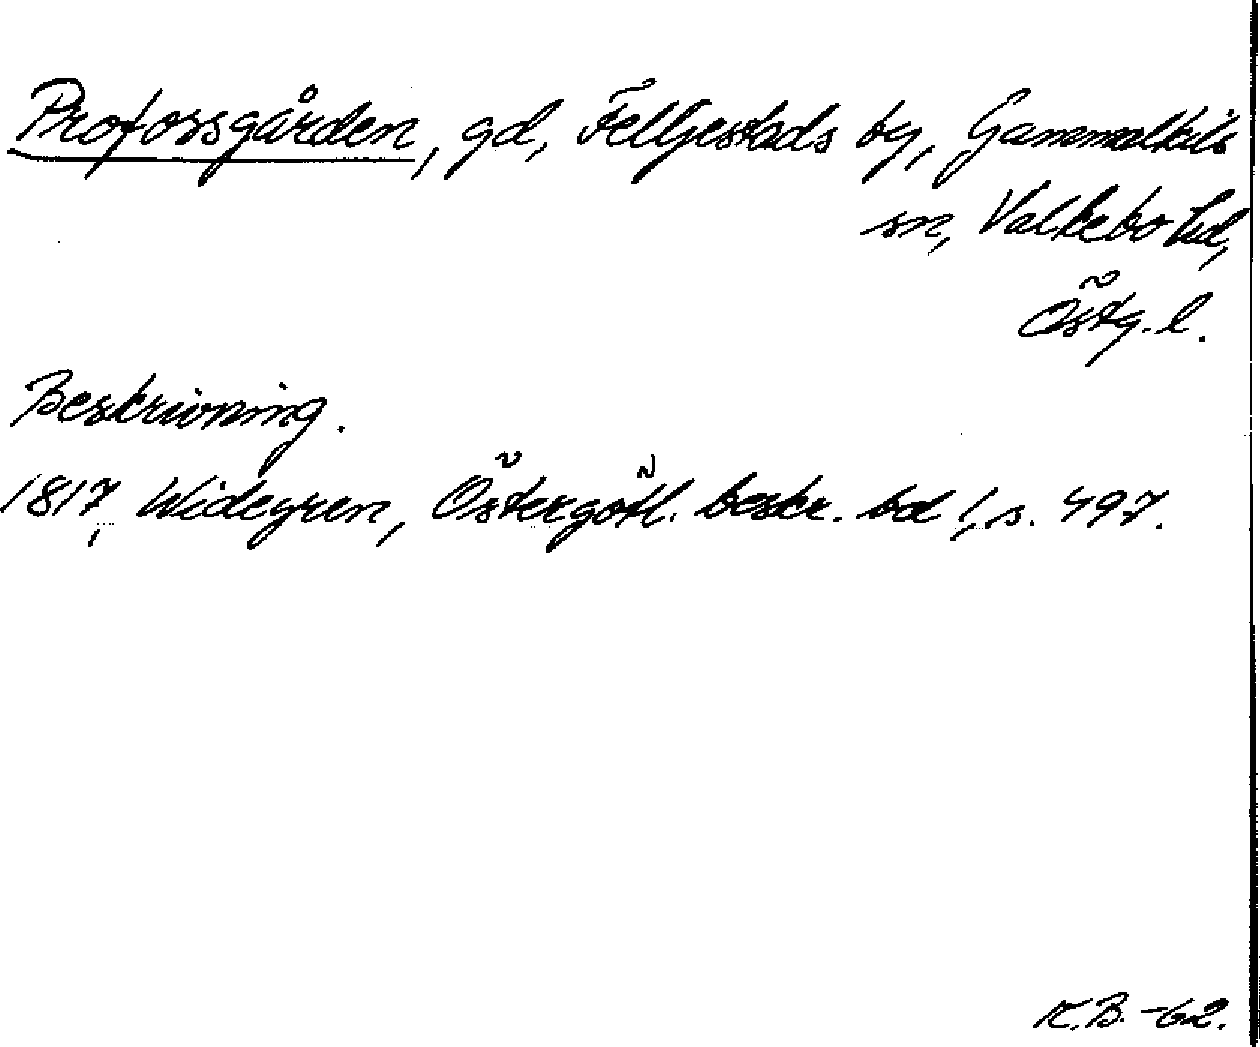 Proforssgården, gd, Felljestads by, Gammalkils
sn, Valkebo hd,
Östg. l.
Beskrivning.
1817, Widegren, Östergötl. beskr. bd 1, s. 497.
K.B. -62.